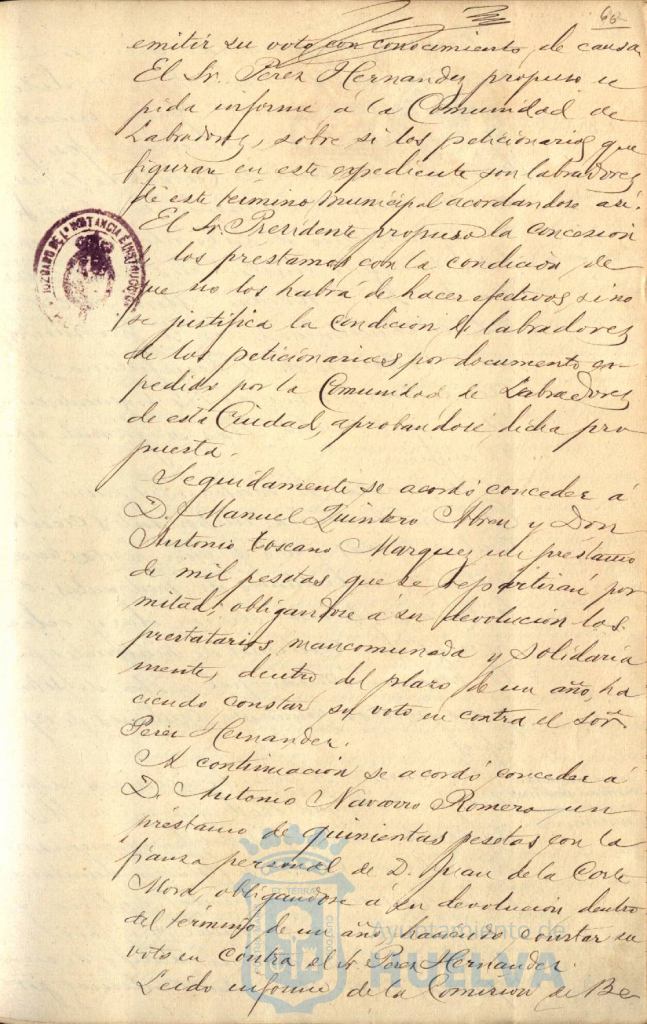 662
emitir su voto con conocimiento de causa
El Sr. Perez Hernandez propuso se
pida informe á la Comunidad de
Labradores, sobre si los peticionarios que
figuran en este expediente son labradores
de este término municipal acordandose así.
El Sr. Presidente propuso la concesion
los prestamos con la condición de
que no los habrá de hacer efectivos si no
se justifica la condicion de labradores
de los peticionarios por documento ex-
pedido por la Comunidad de Labradores
de esta Ciudad, aprobandose dicha pro
puesta.
Seguidamente se acordó conceder á
D. Manuel Quintero Abreu y Don
Antonio Toscano Marquez un prestamo
de mil pesetas que se repartirán por
mitad, obligandose á su devolución los
prestatarios, mancomunada y solidaria
mente, dentro del plazo de un año, ha
ciendo constar su voto en contra el Sor.
Perez Hernandez.
A continuación se acordó conceder á
D. Antonio Navarro Romero un
préstamo de quinientas pesetas con la
fianza personal de D. Juan de la Corte
Mora, obligandose á su devolución dentro
del término de un año haciendo constar su
voto en contra el Sr. Perez Hernández.
Leido informe de la Comision de Be
JUZGADO DE 1ª INSTANCIA E INSTRUCCION
Ayuntamiento de
HUELVA